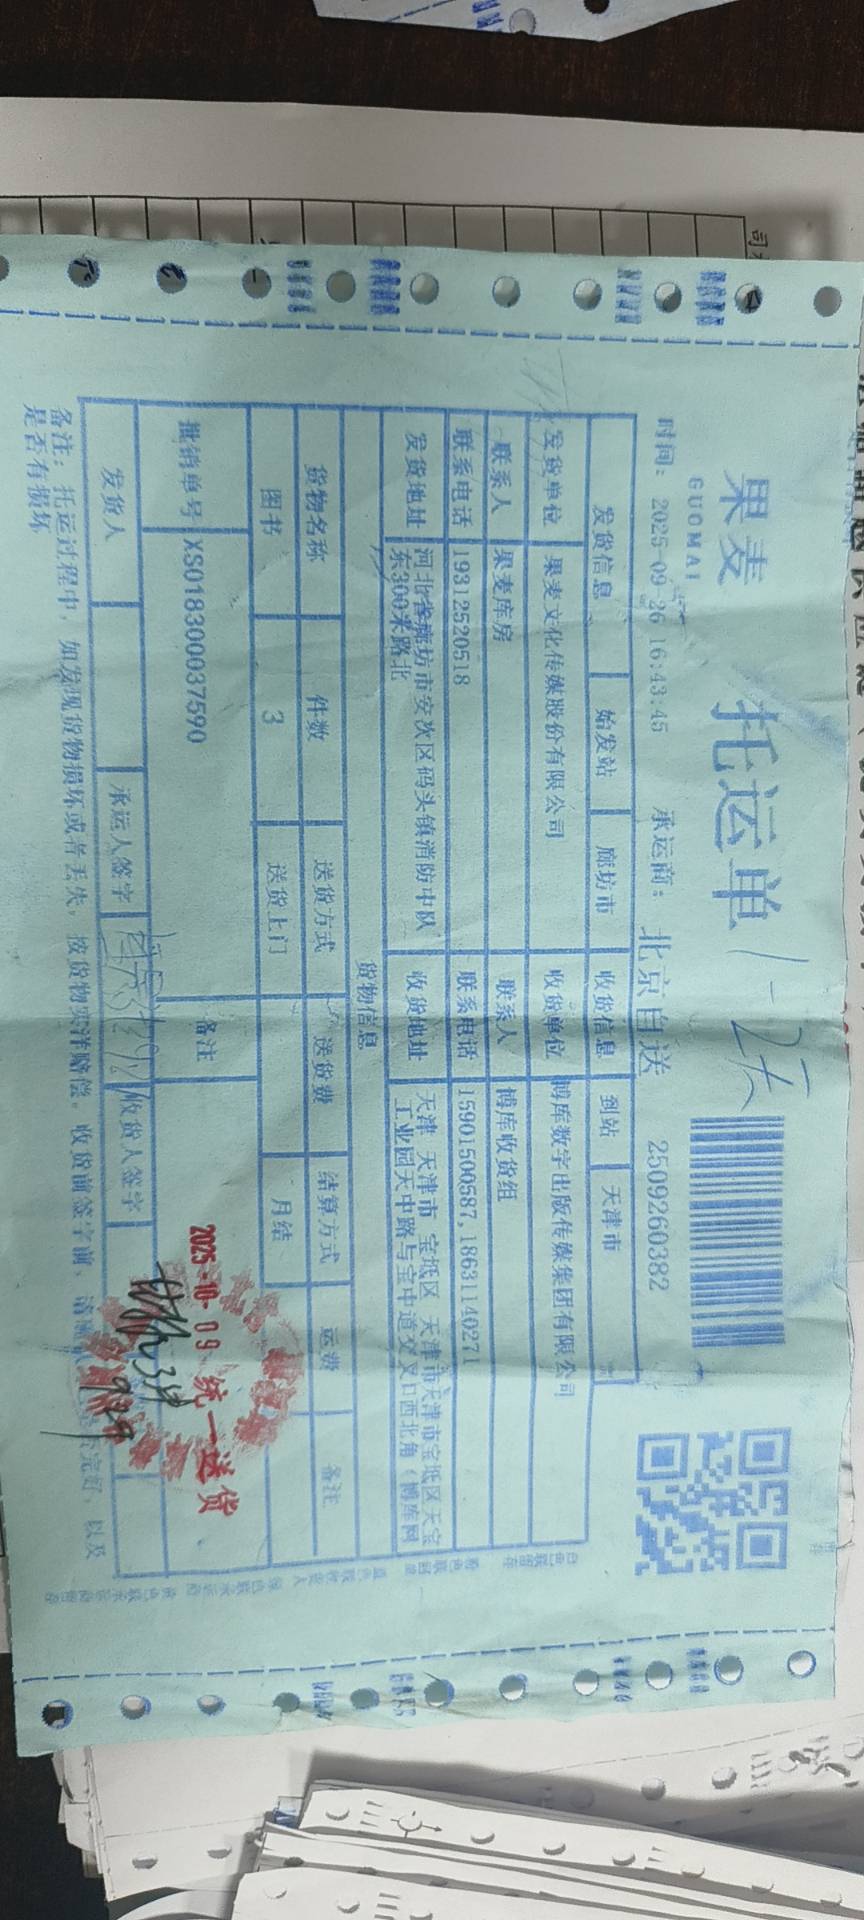 果麦
GUOMAI
托运单
时间: 2025-09-26 16:43:45 承运商: 北京自送 2509260382
发货信息 始发站 廊坊市 收货信息 到站 天津市
发货单位 果麦文化传媒股份有限公司 收货单位 博库数字出版传媒集团有限公司
联系人 果麦库房 联系人 博库收货组
联系电话 19312520518 联系电话 15901500587,18631140271
发货地址 河北省廊坊市安次区码头镇消防中队 收货地址 天津 天津市 宝坻区 天津市天津市宝坻区天宝
东300米路北 工业园天中路与宝中道交叉口西北角(博库网
货物信息
货物名称 件数 送货方式 送货费 结算方式 运费 备注
图书 3 送货上门 月结
批销单号 XS018300037590 备注
发货人 承运人签字 收货人签字
备注: 托运过程中, 如发现货物损坏或者丢失, 按货物实洋赔偿。收货前签字前, 完好, 以及
是否有损坏
2025-10-09 统一送货